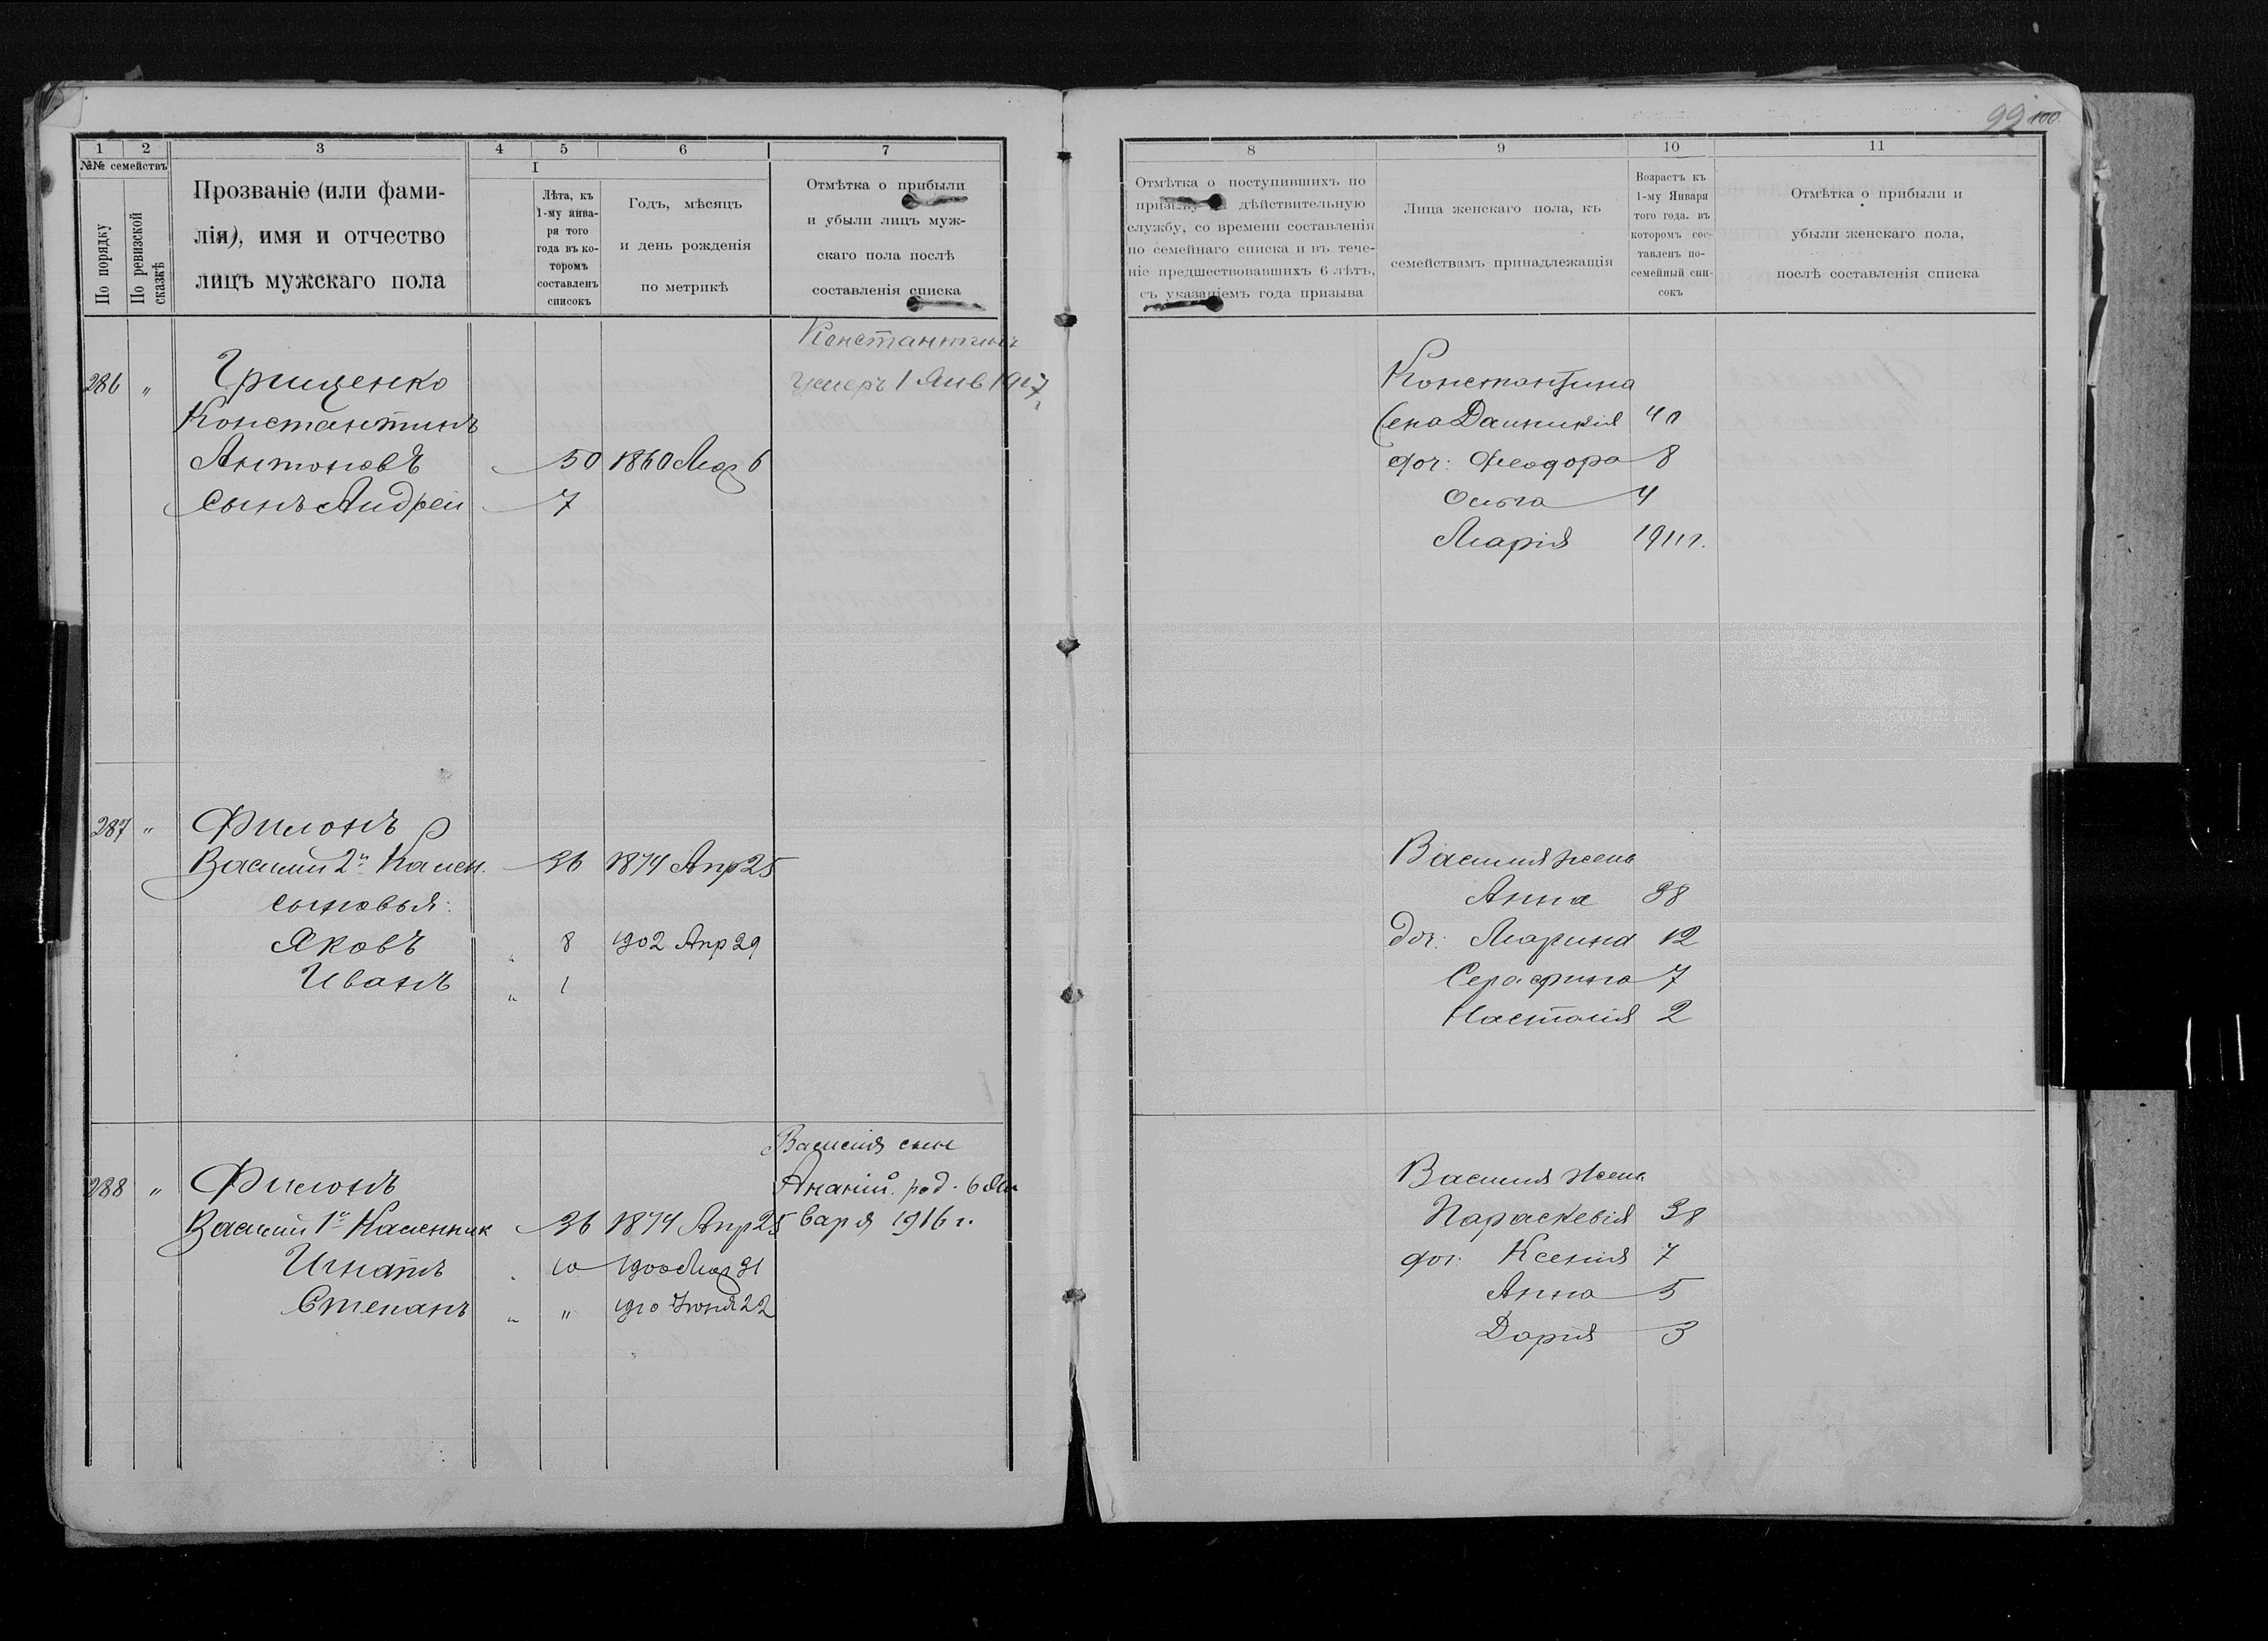 99 100.
1 2 3 4 5 6 7
№№ семействъ
По порядку
По ревизской сказкѣ
Прозваніе (или фами-
лія), имя и отчество
лицъ мужскаго пола
I
Лѣта, къ
1-му янва-
ря того
года въ ко-
торомъ
составленъ
списокъ
Годъ, мѣсяцъ
и день рожденія
по метрикѣ
Отмѣтка о прибыли
и убыли лицъ муж-
скаго пола послѣ
составленія списка
Константинъ
286 " Грищенко умеръ 1 Янв 1917
Константинъ
Антоновъ 50 1860 Мар 6
сынъ Андрей 7
287 " Филонъ
Василий 2й
Камен. 36 1874 Апр 25
сыновья:
Яковъ " 8 1902 Апр 29
Иванъ " 1
Василія сынъ
288 " Филонъ Ананій. род. 6 Ян
Василий 1й 36 1874 Апр 25 варя 1916 г.
Игнатъ 10 1900 Мар 31
Степанъ " " 1910 Іюня 22
8 9 10 11
Отмѣтка о поступившихъ по
призыву на дѣйствительную
службу, со времени составленія
по семейнаго списка и въ тече-
ніе предшествовавшихъ 6 лѣтъ,
съ указаніемъ года призыва
Лица женскаго пола, къ
семействамъ принадлежащія
Возрастъ къ
1-му Января
того года. въ
которомъ сос-
тавленъ по-
семейный спи-
сокъ
Отмѣтка о прибыли и
убыли женскаго пола,
послѣ составленія списка
Константина
40
доч: Феодора 8
Ольга 4
Марія 1911 г.
Василія жена
Анна 38
доч: Марина 12
Серафима 7
2
Василія жена
Параскевія 38
доч: Ксенія 7
Анна 5
Дарія 3